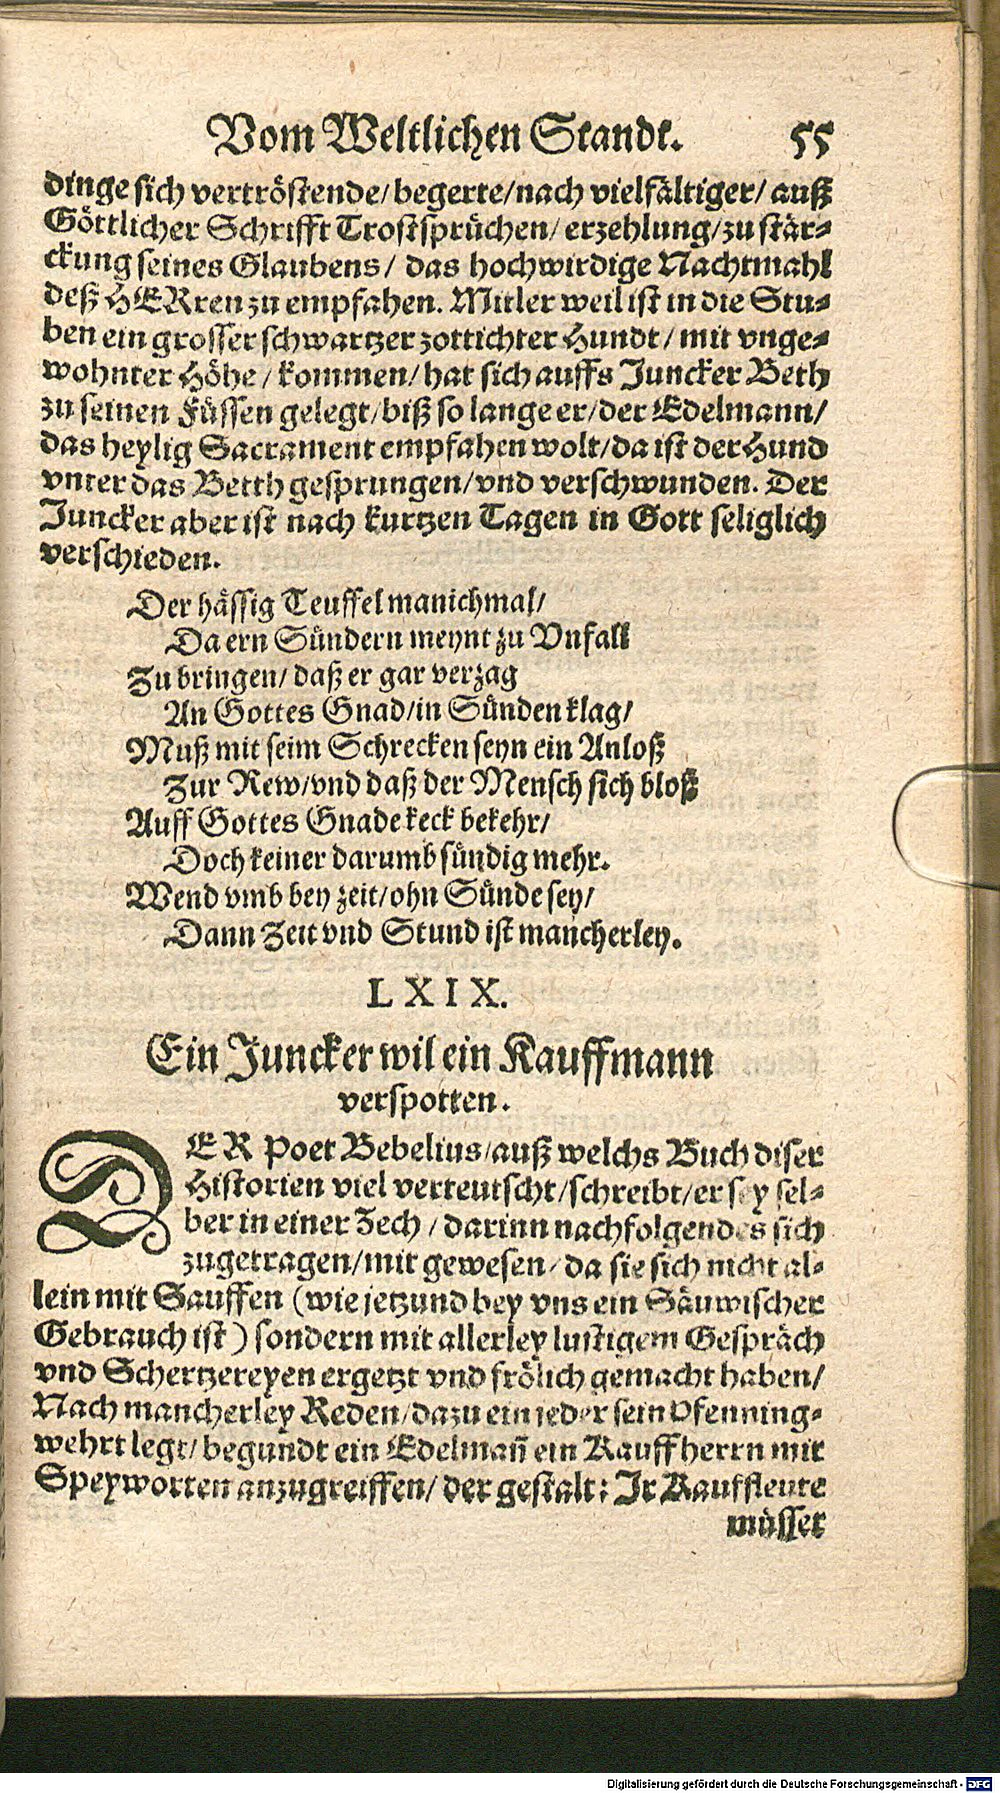 Vom Weltlichen Standt. 55
dinge sich vertröstende/ begerte/ nach vielfältiger/ auß
Göttlicher Schrifft Trostsprüchen/ erzehlung/ zu stär-
ckung seines Glaubens/ das hochwirdige Nachtmahl
deß HERren zu empfahen. Mitler weil ist in die Stu-
ben ein grosser schwartzer zottichter Hundt/ mit vnge-
wohnter Höhe/ kommen/ hat sich auffs Juncker Beth
zu seinen Füssen gelegt/ biß so lange er/ der Edelmann/
das heylig Sacrament empfahen wolt/ da ist der Hund
vnter das Betth gesprungen/ vnd verschwunden. Der
Juncker aber ist nach kurtzen Tagen in Gott seliglich
verschieden.
Der hässig Teuffel manichmal/
Da ern Sündern meynt zu Vnfall
Zu bringen/ daß er gar verzag
An Gottes Gnad/ in Sünden klag/
Muß mit seim Schrecken seyn ein Anloß
Zur Rew/ vnd daß der Mensch sich bloß
Auff Gottes Gnade keck bekehr/
Doch keiner darumb sündig mehr.
Wend vmb bey zeit/ ohn Sünde sey/
Dann Zeit vnd Stund ist mancherley.
LXIX.
Ein Juncker wil ein Kauffmann
verspotten.
DER Poet Bebelius/ auß welchs Buch diser
Historien viel verteutscht/ schreibt/ er sey sel-
ber in einer Zech/ darinn nachfolgendes sich
zugetragen/ mit gewesen/ da sie sich nicht al-
lein mit Sauffen (wie jetzund bey vns ein Säuwischer
Gebrauch ist) sondern mit allerley lustigem Gespräch
vnd Schertzereyen ergetzt vnd frölich gemacht haben/
Nach mancherley Reden/ dazu ein jeder sein Pfenning-
wehrt legt/ begundt ein Edelmañ ein Kauffherrn mit
Speyworten anzugreiffen/ der gestalt: Jr Kauffleute
müsset
Digitalisierung gefördert durch die Deutsche Forschungsgemeinschaft - DFG